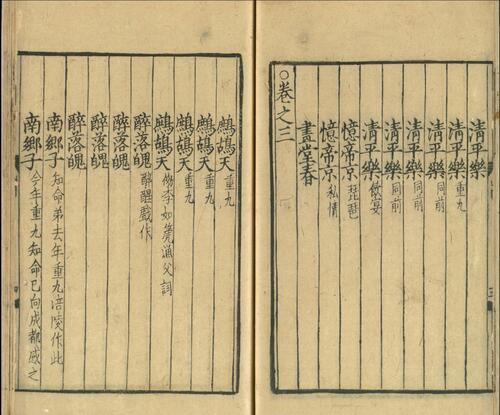 清平樂
清平樂 重九
清平樂 同前
清平樂 同前
清平樂 同前
清平樂 飲宴
憶帝京 琵琶
憶帝京 私情
畫堂春
○卷之三
鷓鴣天 重九
鷓鴣天 重九
鷓鴣天 重九
鷓鴣天 倣李如箎漁父詞
醉落魄 醉醒戲作
醉落魄
醉落魄
醉落魄
南鄉子 知命弟去年重九涪陵作此
南鄉子 今年重九知命已向成都感之